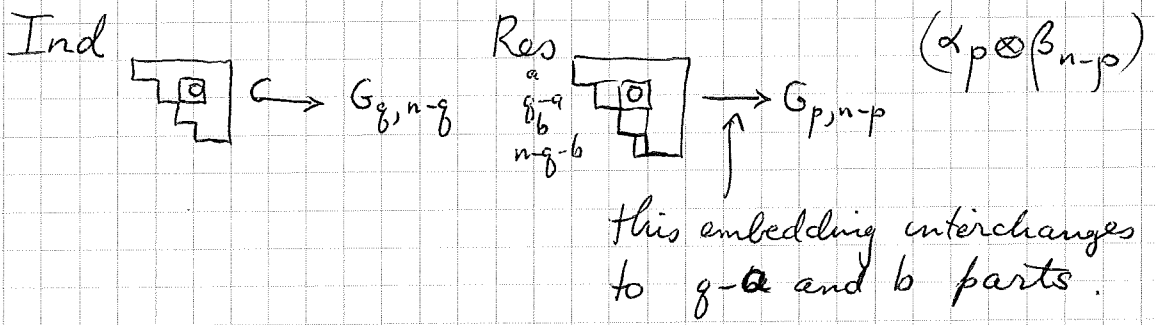 Ind O ⊂→ G_{q, n-q} Res a q-a b n-q-b O → G_{p, n-p} (α_p ⊗ β_{n-p})
this embedding interchanges
to q-a and b parts.